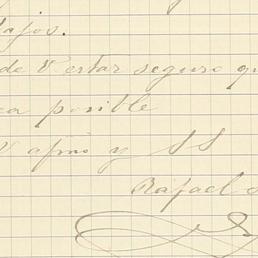 de V estar seguro qu
posible
V afmo y SS
Rafael